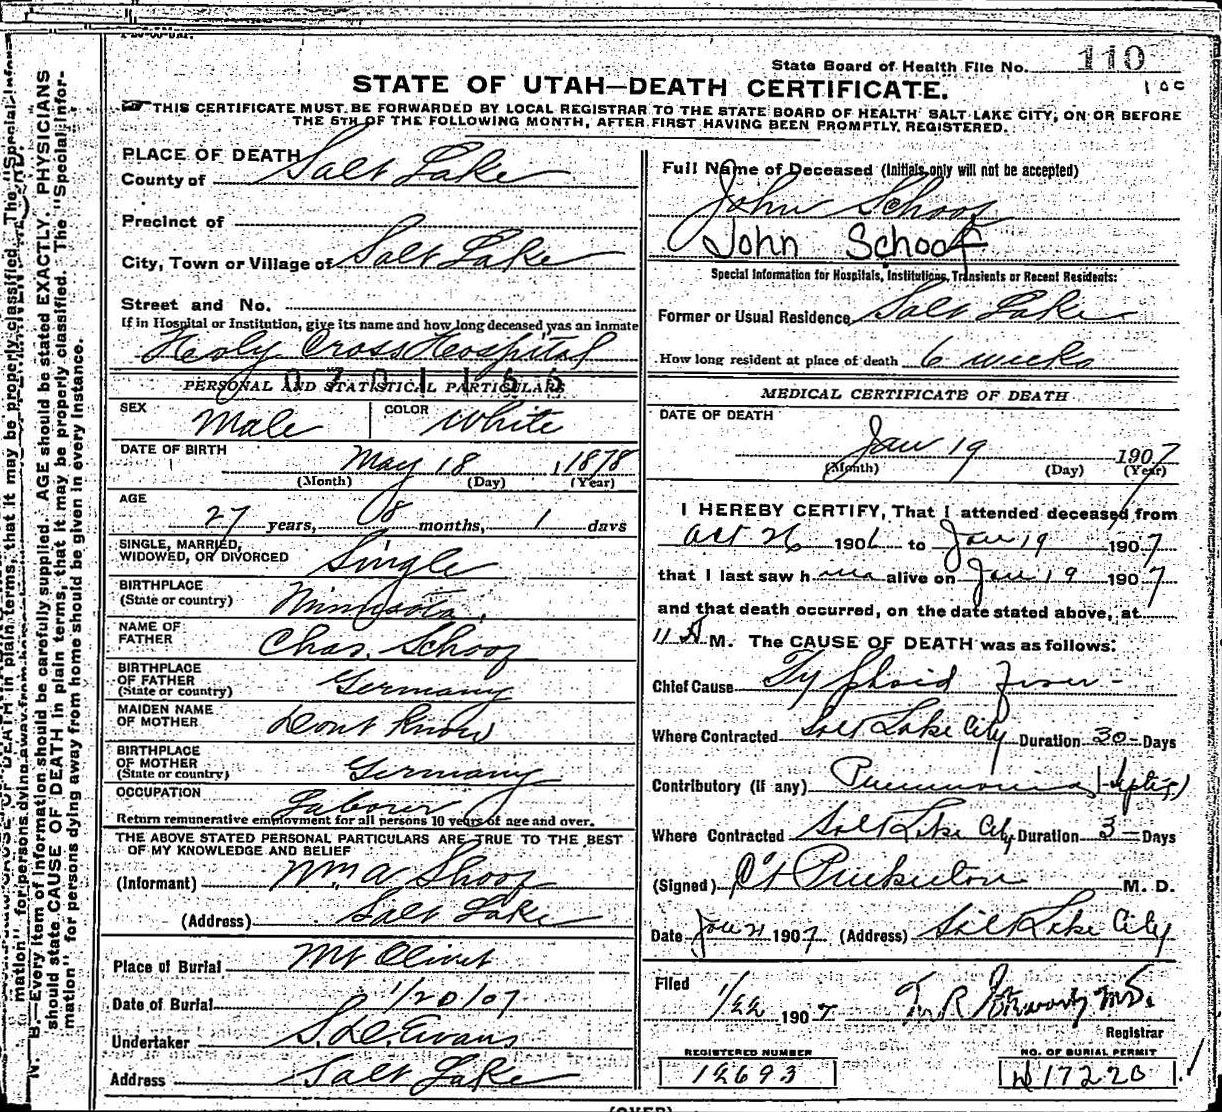 State Board of Health File No. 110
STATE OF UTAH—DEATH CERTIFICATE.
THIS CERTIFICATE MUST BE FORWARDED BY LOCAL REGISTRAR TO THE STATE BOARD OF HEALTH SALT LAKE CITY, ON OR BEFORE
THE 5TH OF THE FOLLOWING MONTH, AFTER FIRST HAVING BEEN PROMPTLY REGISTERED.
PLACE OF DEATH
County of Salt Lake
Precinct of
City, Town or Village of Salt Lake
Street and No.
If in Hospital or Institution, give its name and how long deceased was an inmate
Holy Cross Hospital
PERSONAL AND STATISTICAL PARTICULARS
SEX Male COLOR White
DATE OF BIRTH May 18, 1878
(Month) (Day) (Year)
AGE
27 years, 8 months, 1 days
SINGLE, MARRIED,
WIDOWED, OR DIVORCED Single
BIRTHPLACE
(State or country) Minnesota
NAME OF
FATHER Chas. Schoof
BIRTHPLACE
OF FATHER
(State or country) Germany
MAIDEN NAME
OF MOTHER Dont Know
BIRTHPLACE
OF MOTHER
(State or country) Germany
OCCUPATION Laborer
Return remunerative employment for all persons 10 years of age and over.
THE ABOVE STATED PERSONAL PARTICULARS ARE TRUE TO THE BEST
OF MY KNOWLEDGE AND BELIEF
(Informant) Wm a Shoof
(Address) Salt Lake
Place of Burial Mt Olivet
Date of Burial 1/20/07
Undertaker S. D. Evans
Address Salt Lake
Full Name of Deceased (Initials only will not be accepted)
John Schoof
John Schoof
Special Information for Hospitals, Institutions, Transients or Recent Residents:
Former or Usual Residence Salt Lake
How long resident at place of death 6 weeks
MEDICAL CERTIFICATE OF DEATH
DATE OF DEATH
Jan 19 1907
(Month) (Day) (Year)
I HEREBY CERTIFY, That I attended deceased from
Oct 26 1906 to Jan 19 1907
that I last saw him alive on Jan 19 1907
and that death occurred, on the date stated above, at
11 A M. The CAUSE OF DEATH was as follows:
Chief Cause Typhoid Fever
Where Contracted Salt Lake City Duration 30 Days
Contributory (If any) Pneumonia (septic)
Where Contracted Salt Lake City Duration 3 Days
(Signed) Pinkerton M. D.
Date Jan 21 1907 (Address) Salt Lake City
Filed
1/22 1907 M.D.
Registrar
REGISTERED NUMBER
12693
NO. OF BURIAL PERMIT
17220
(OVER)
N. B.—Every item of information should be carefully supplied. AGE should be stated EXACTLY. PHYSICIANS
should state CAUSE OF DEATH in plain terms, that it may be properly classified. The "Special Infor-
mation" for persons dying away from home should be given in every instance.